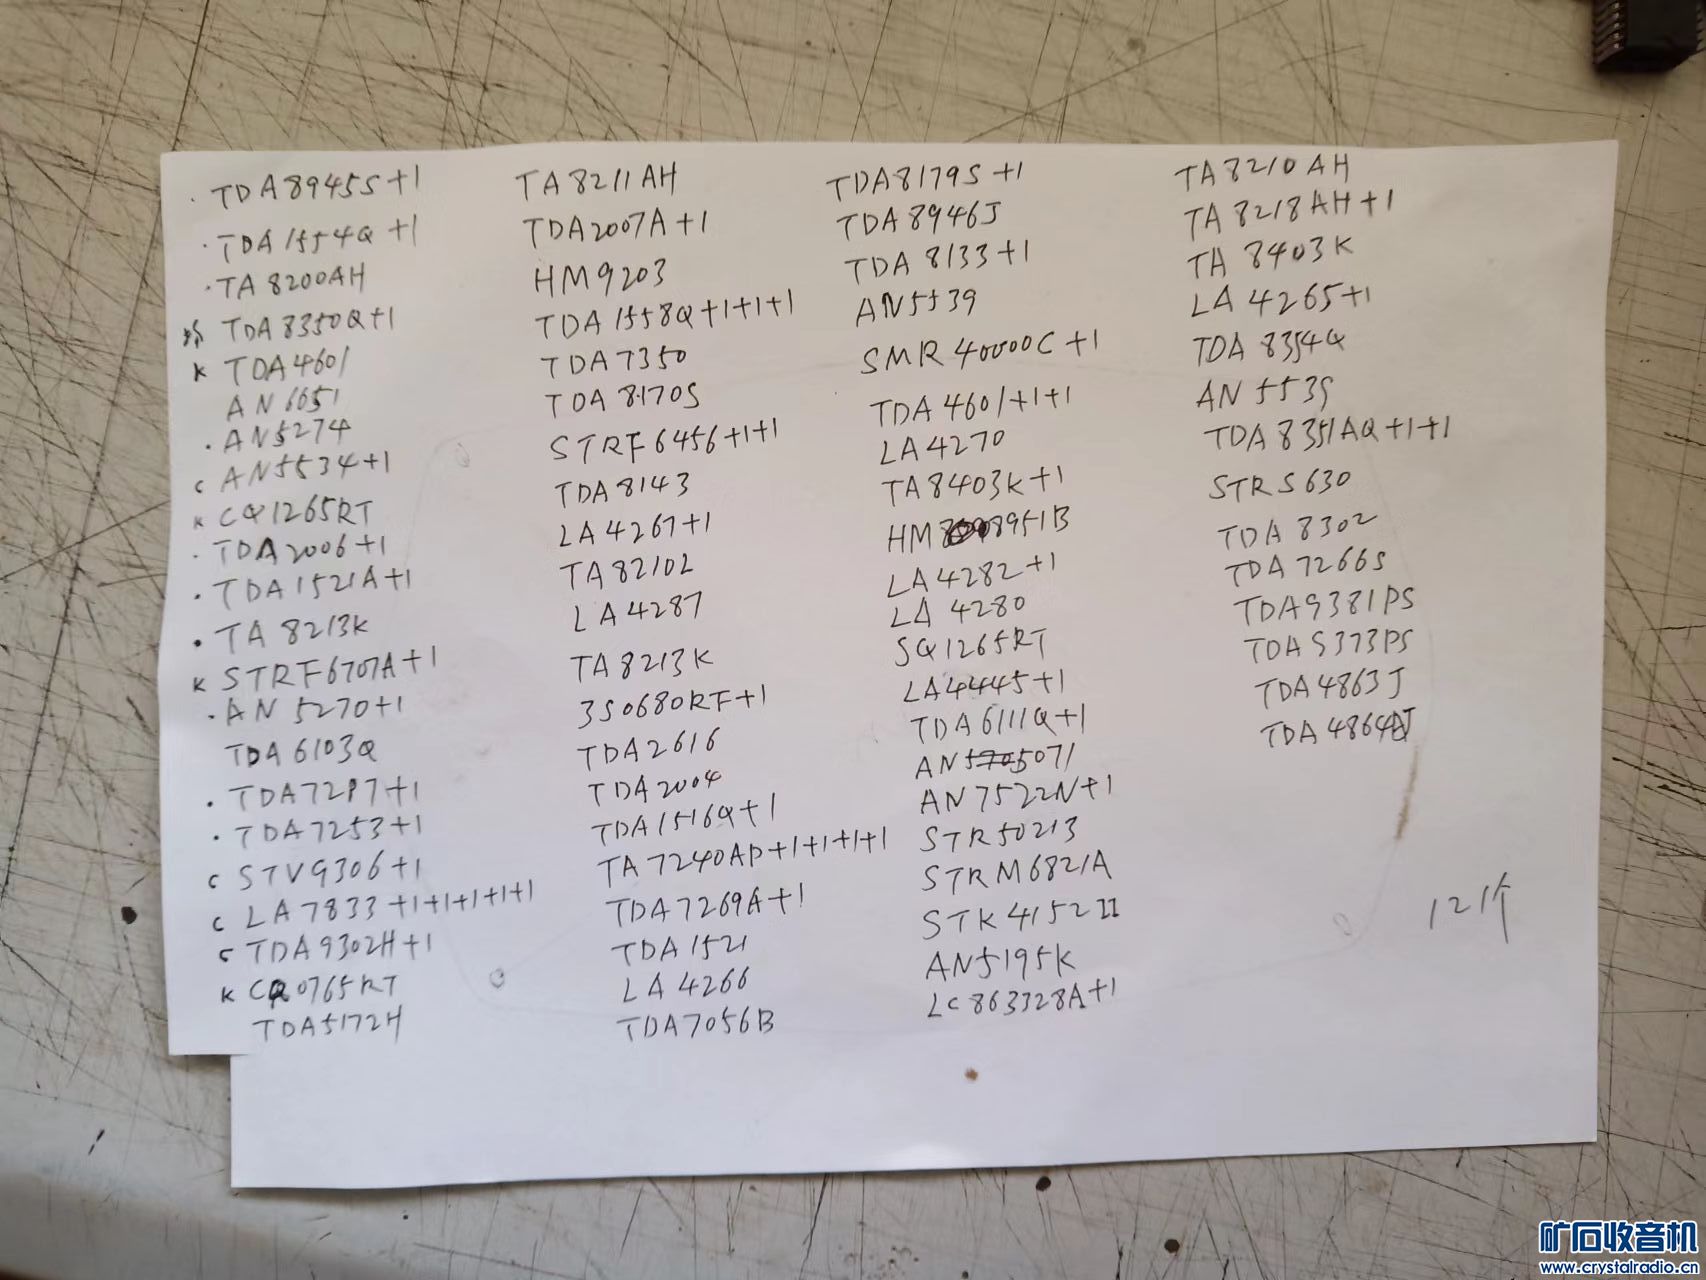 · TDA8945S+1
· TDA1554Q+1
· TA8200AH
TDA8350Q+1
K TDA4601
AN6651
· AN5274
C AN5534+1
K CQ1265RT
· TDA2006+1
· TDA1521A+1
· TA8213K
K STRF6707A+1
· AN5270+1
TDA6103Q
· TDA7297+1
· TDA7253+1
C STV9306+1
C LA7833+1+1+1+1+1
C TDA9302H+1
K CQ0765RT
TDA5172H
TA8211AH
TDA2007A+1
HM9203
TDA1558Q+1+1+1
TDA7350
TDA8170S
STRF6456+1+1
TDA8143
LA4267+1
TA8210L
LA4287
TA8213K
3S0680RF+1
TDA2616
TDA2004
TDA1516Q+1
TA7240AP+1+1+1+1
TDA7269A+1
TDA1521
LA4266
TDA7056B
TDA8179S+1
TDA8946J
TDA8133+1
AN5539
SMR40000C+1
TDA4601+1+1
LA4270
TA8403K+1
HM8951B
LA4282+1
LA4280
SQ1265RT
LA4445+1
TDA6111Q+1
AN5071
AN7522N+1
STR50213
STRM6821A
STK4152II
AN5195K
LC863328A+1
TA8210AH
TA8218AH+1
TA8403K
LA4265+1
TDA8354Q
AN5539
TDA8351AQ+1+1
STRS630
TDA8302
TDA7266S
TDA9381PS
TDA9373PS
TDA4863J
TDA4864AJ
121个
矿石收音机
www.crystalradio.cn